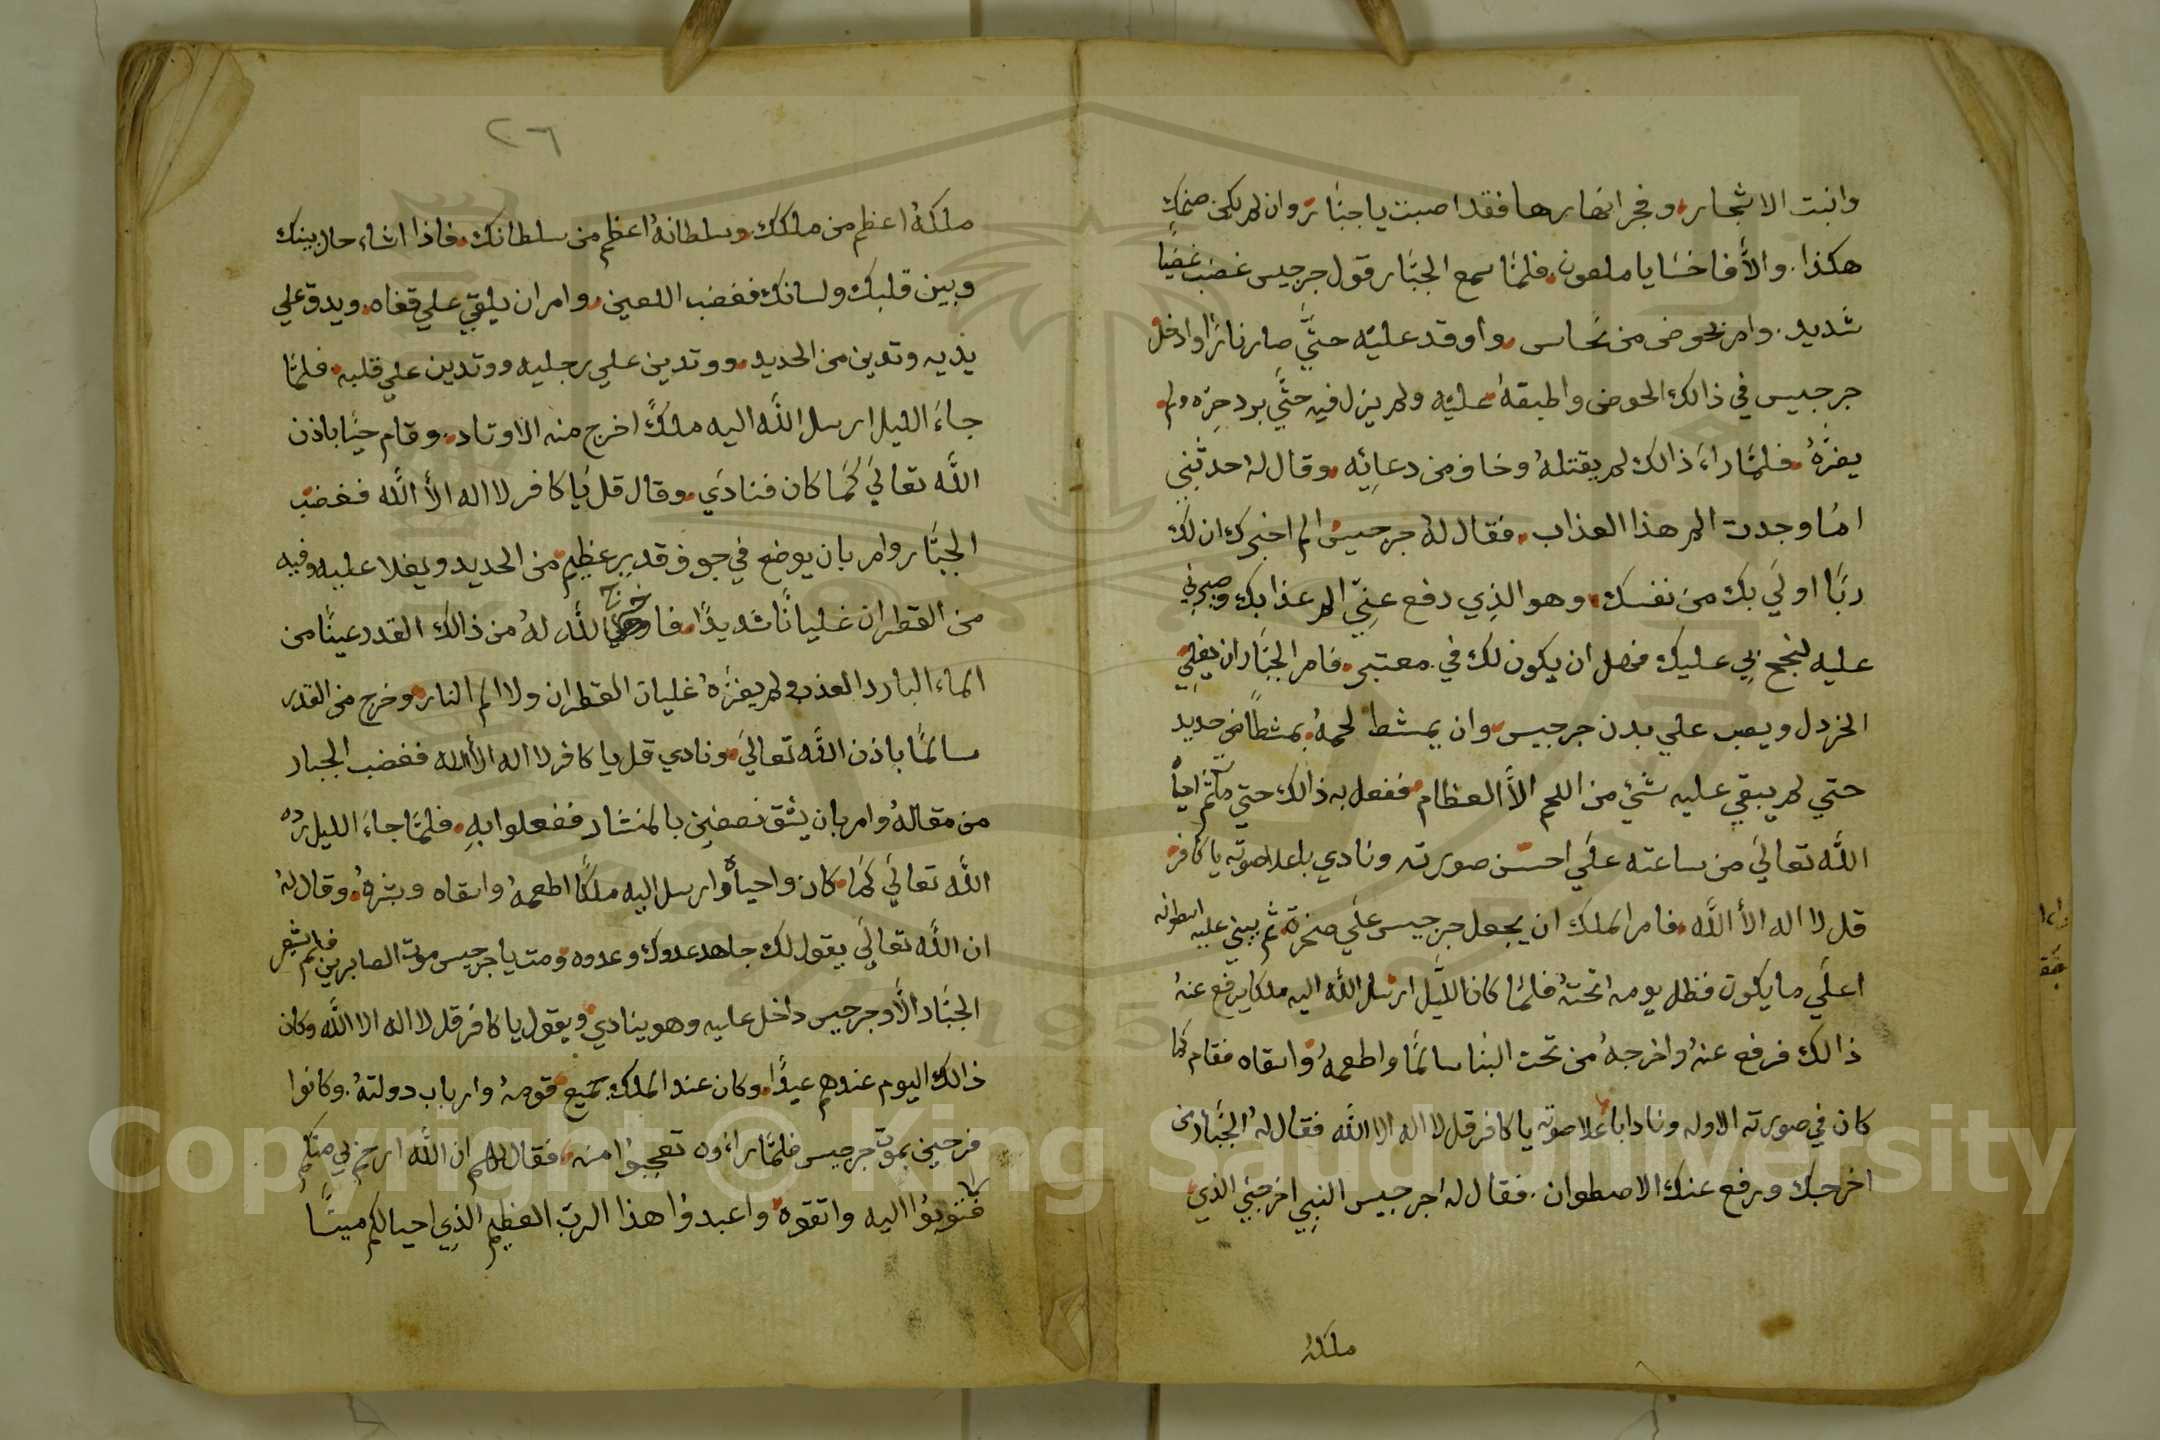 وانبت الاشجار وفجر انهارها فقد اصبت يا جبار وان لم يكن صنمك
هكذا والأ فاخسا يا ملعون فلما سمع الجبار قول جرجيس غضب غضبا
شديد وامر بحوض من نحاس واوقد عليه حتي صار نارا وادخل
جرجيس في ذالك الحوض واطبقه عليه ولم يزل فيه حتي برد حره ولم
يضره فلما راء ذالك لم يقتله وخاف من دعائه وقال له حدثني
اما وجدت الم هذا العذاب فقال له جرجيس الم اخبرك ان لك
ربا اولي بك من نفسك وهو الذي دفع عني الم عذابك وصبرني
عليه لنحج بي عليك فهل ان يكون لك في معتبر فامر الجبار ان يغلي
الخردل ويصب علي بدن جرجيس وان يمشط لحمه بمشط من حديد
حتي لم يبقي عليه شئ من اللحم الأ العظام ففعل به ذالك حتي مات ثم احياه
الله تعالي من ساعته علي احسن صورته ونادي باعلا صوته يا كافر
قل لا اله الأ الله فامر الملك ان يجعل جرجيس علي صخرة ثم يبني عليه اسطوانه
اعلي ما يكون فظل يومه تحته فلما كان الليل ارسل الله اليه ملكا يرفع عنه
ذالك فرفع عنه واخرجه من تحت البنا سالما واطعمه واسقاه فقام كما
كان في صورته الاوله ونادا باعلا صوته يا كافر قل لا اله الا الله فقال له الجبار من
اخرجك ورفع عنك الاصطوان فقال له جرجيس النبي اخرجني الذي
ملكه
٢٦
ملكه اعظم من ملكك وسلطانه اعظم من سلطانك فاذا اشاء حال بينك
وبين قلبك ولسانك فغضب اللعين وامر ان يلقي علي قفاه ويدق علي
يديه وتدين من الحديد ووتدين علي رجليه ووتدين علي قلبه فلما
جاء الليل ارسل الله اليه ملك اخرج منه الاوتاد وقام حيا باذن
الله تعالي كما كان فنادي وقال قل يا كافر لا اله الأ الله فغضب
الجبار وامر بان يوضع في جوف قدير عظيم من الحديد ويغلا عليه وفيه
من القطران غليانا شديدا فاخرج الله له من ذالك القدر عينا من
الماء البارد العذب ولم يضره غليان القطران ولا الم النار وخرج من القدر
سالما باذن الله تعالي ونادي قل يا كافر لا اله الأ الله فغضب الجبار
من مقاله وامر بان يشق نصفين بالمنشار ففعلوا به فلما جاء الليل رده
الله تعالي كما كان واحياه وارسل اليه ملكا اطعمه واسقاه وبشره وقال له
ان الله تعالي يقول لك جاهد عدوك وعدوه ومت يا جرجيس موت الصابرين فلم يشعر
الجبار الأ وجرجيس داخل عليه وهو ينادي ويقول يا كافر قل لا اله الا الله وكان
ذالك اليوم عندهم عيدا وكان عند الملك جميع قومه وارباب دولته وكانوا
فرحين بموت جرجيس فلما راءوه تعجبوا منه فقال لهم ان الله ارحم بي منكم
فتوبوا اليه واتقوه واعبدوا هذا الرب العظيم الذي احيا لكم ميتا
Copyright © King Saud University
1957